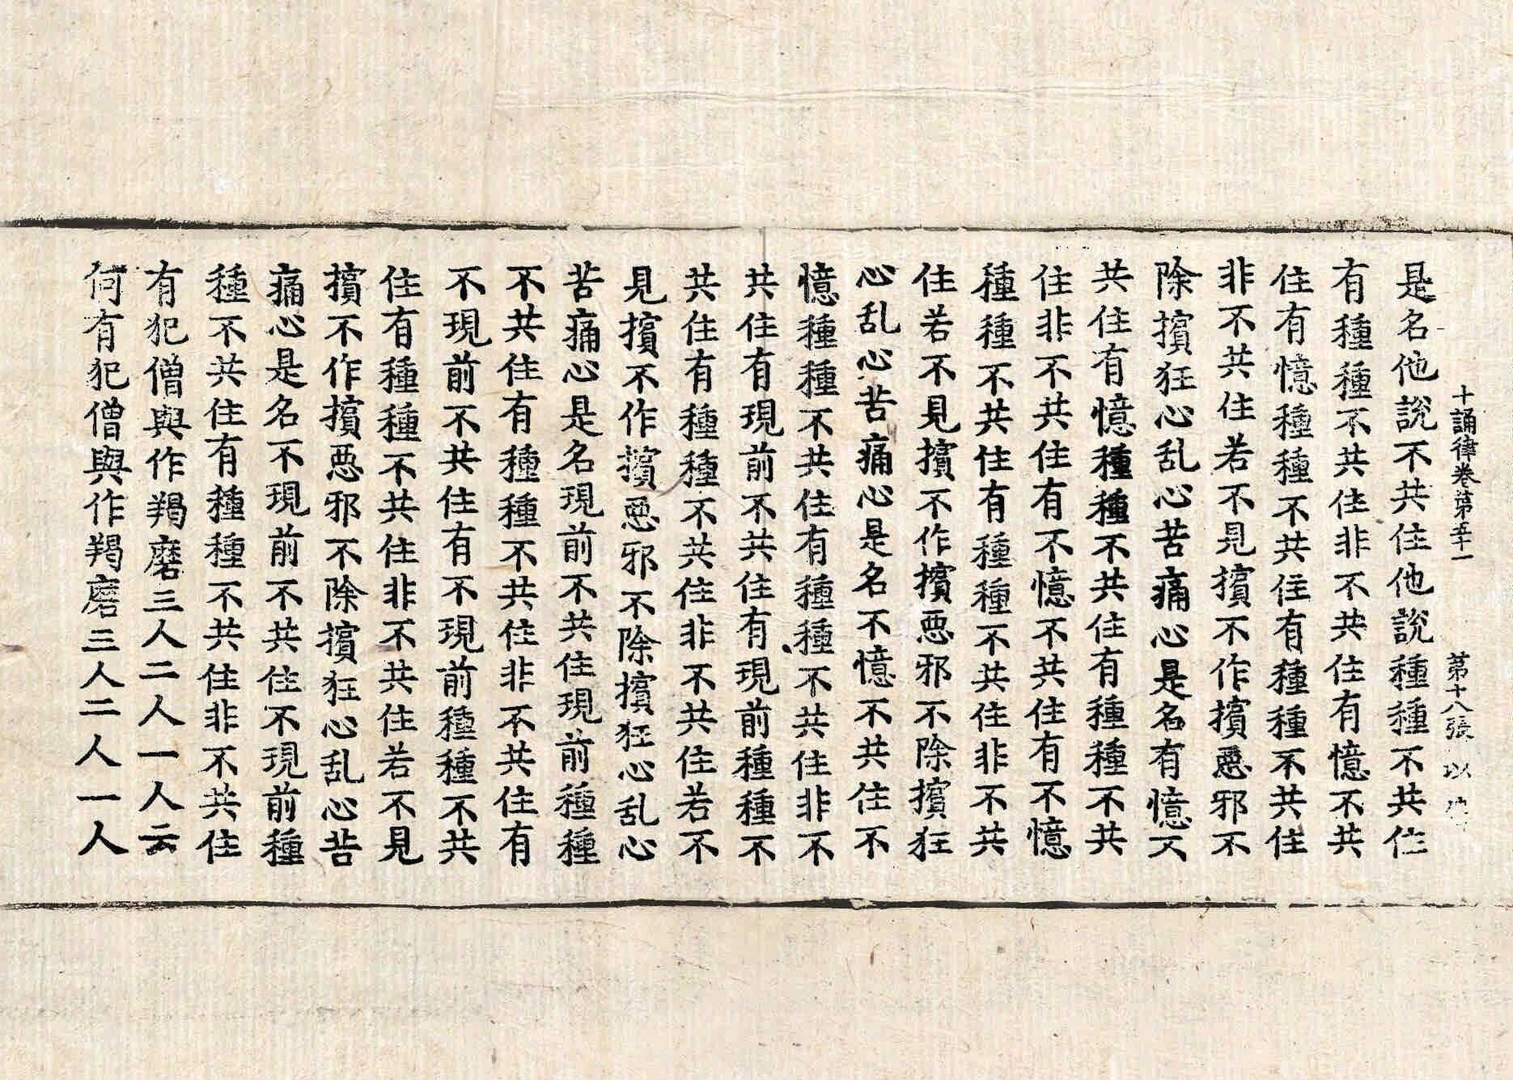 十誦律卷第五十一 第十八張 以
是名他說不共住他說種種不共住
有種種不共住非不共住有憶不共
住有憶種種不共住有種種不共住
非不共住若不見擯不作擯惡邪不
除擯狂心乱心苦痛心是名有憶不
共住有憶種種不共住有種種不共
住非不共住有不憶不共住有不憶
種種不共住有種種不共住非不共
住若不見擯不作擯惡邪不除擯狂
心乱心苦痛心是名不憶不共住不
憶種種不共住有種種不共住非不
共住有現前不共住有現前種種不
共住有種種不共住非不共住若不
見擯不作擯惡邪不除擯狂心乱心
苦痛心是名現前不共住現前種種
不共住有種種不共住非不共住有
不現前不共住有不現前種種不共
住有種種不共住非不共住若不見
擯不作擯惡邪不除擯狂心乱心苦
痛心是名不現前不共住不現前種
種不共住有種種不共住非不共住
有犯僧與作羯磨三人二人一人云
何有犯僧與作羯磨三人二人一人